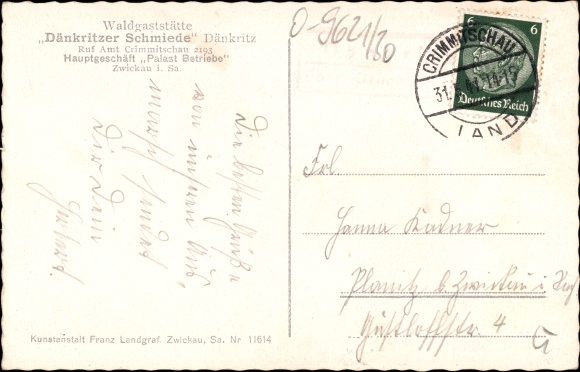 Waldgaststätte
„Dänkritzer Schmiede" Dänkritz
Ruf Amt Crimmitschau 2193
Hauptgeschäft „Palast Betriebe"
Zwickau i. Sa.
0-9621/30
6 6
Deutsches Reich
CRIMMITSCHAU
LAND
Die besten Grüße
von unserem Aus-
sendet
Dir Dein
Gerhard.
Frl.
Hanna Kadner
Planitz b. Zwickau i. Sa
Gustloffstr. 4
Kunstanstalt Franz Landgraf, Zwickau, Sa. Nr 11614